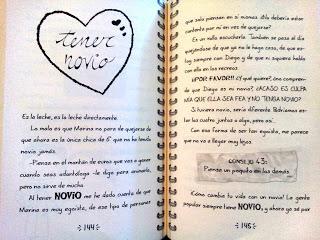 tener
novio
Es la leche, es la leche directamente.
La mala es que Marina no para de quejarse de
que ahora es la única chica de 6º que no ha tenido
novio jamás.
–Piensa en el montón de euros que vas a ganar
cuando seas odontóloga –le digo para animarla,
pero no sirve de mucho.
Al tener NOVIO me he dado cuenta de que
Marina es muy egoísta, de ese tipo de personas
144
que solo piensan en sí mismas. ¡No debería estar
contenta por mí en vez de quejarse?
Es un rollo escucharla. También se pasa el día
quejándose de que ya no le hago caso, de que es-
toy siempre con Diego y de que ni siquiera hablo
con ella en los recreos.
¡¡POR FAVOR!! ¿Y qué quiere?, ¿no compren-
de que Diego es mi novio? ¿ACASO ES CULPA
MÍA QUE ELLA SEA FEA Y NO TENGA NOVIO?
Si hubiera novios, sería diferente. Podríamos es-
tar los cuatro juntos o algo, pero así...
Con esa forma de ser tan egoísta, me parece
que no va a llegar muy lejos.
CONSEJO 43:
Piensa un poquito en los demás.
Cómo cambia tu vida con un novio! La gente
popular siempre tiene NOVIO, y ahora yo sé por
145